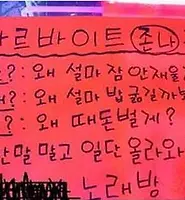 르바이트 (존나
?: 왜 설마 잠 안재울
?: 왜 설마 밥 굶길까
?: 왜 때돈벌게?
말 말고 일단 올라와
노래방